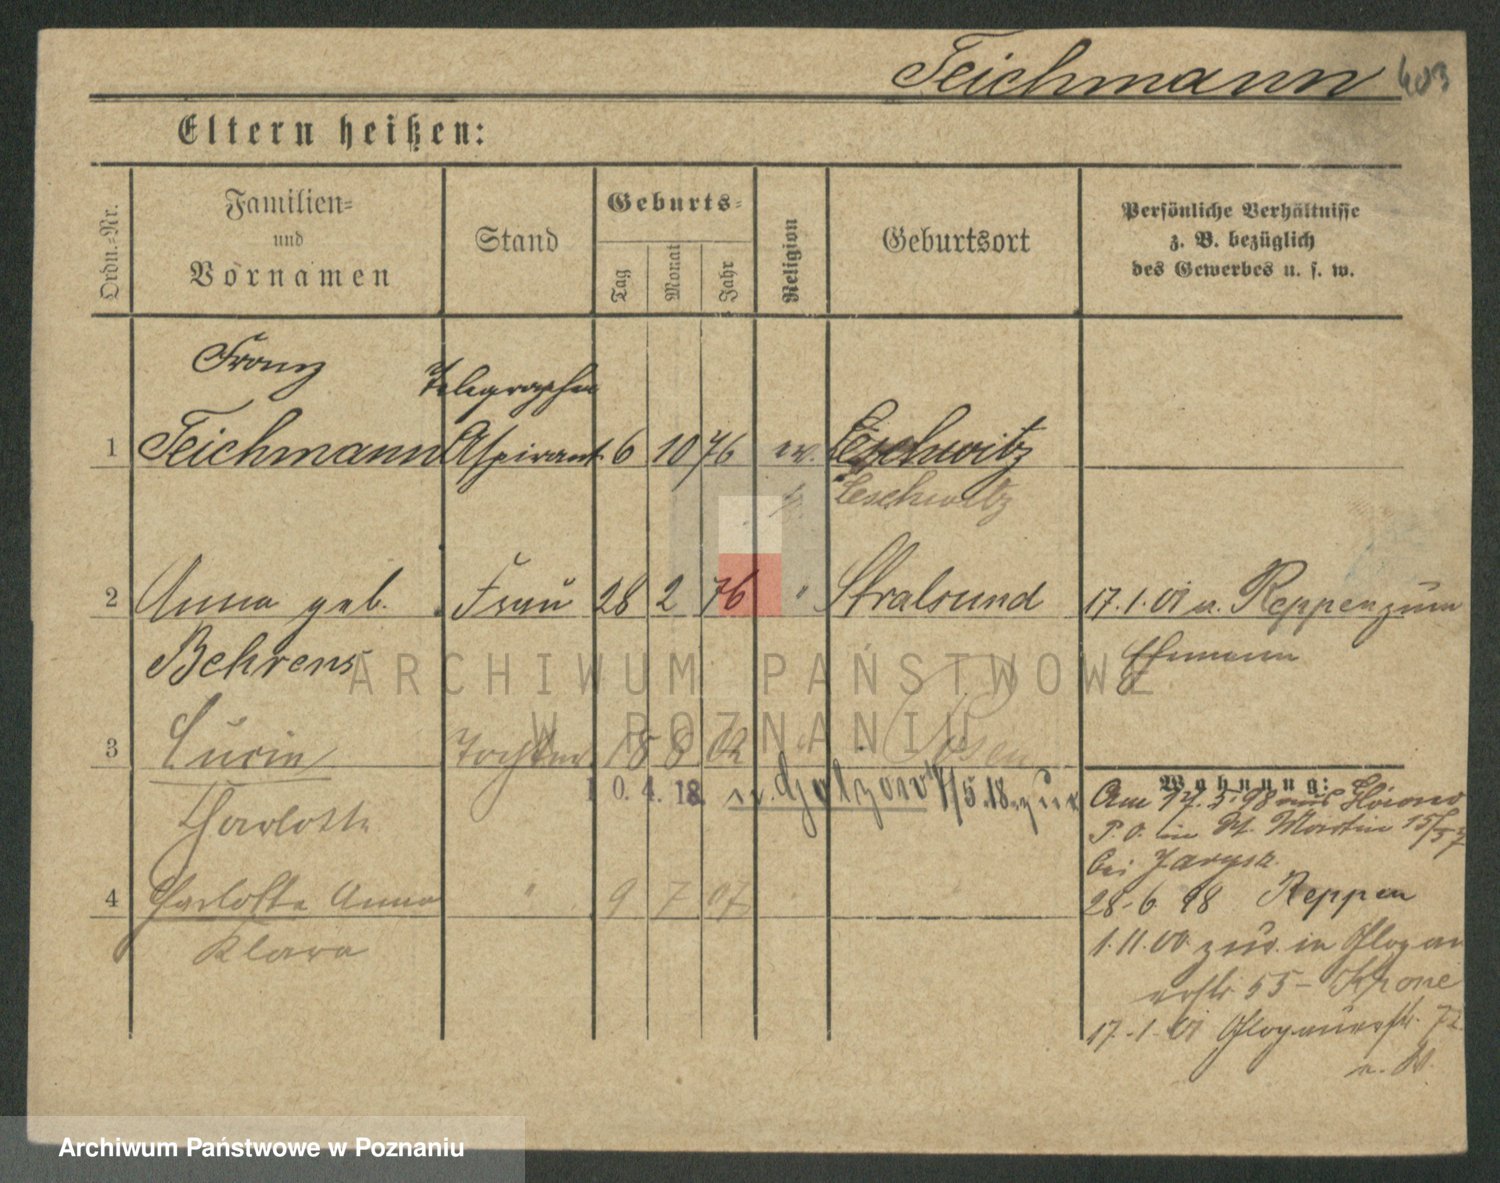 Teichmann 403
Eltern heißen:
Ordn.-Nr.
Familien-
und
Vornamen
Stand
Geburts-
Tag
Monat
Jahr
Religion
Geburtsort
Persönliche Verhältnisse
z. B. bezüglich
des Gewerbes u. s. w.
Franz
Telegraphen
1 Teichmann Aspirant 6 10 76 ev. Leschwitz
Leschwitz
2 Anna geb. Frau 28 2 76 " Stralsund 17.1.01 v. Reppen zum
Behrens Ehemann
3 Lucie Tochter 18 8 02 " Posen
10.4.18. 5.18. zur
Charlotte
4 Charlotte Anna " 9 7 07 " "
Klara
Wohnung:
Am 97.5.98 aus
P. O. in St. Martin 15/57
bei
28.6.98 Reppen
1.11.00 zur. in Glogau
55 - Krone
17.1.01 Glogauerstr. 72
ARCHIWUM PAŃSTWOWE
W POZNANIU
Archiwum Państwowe w Poznaniu